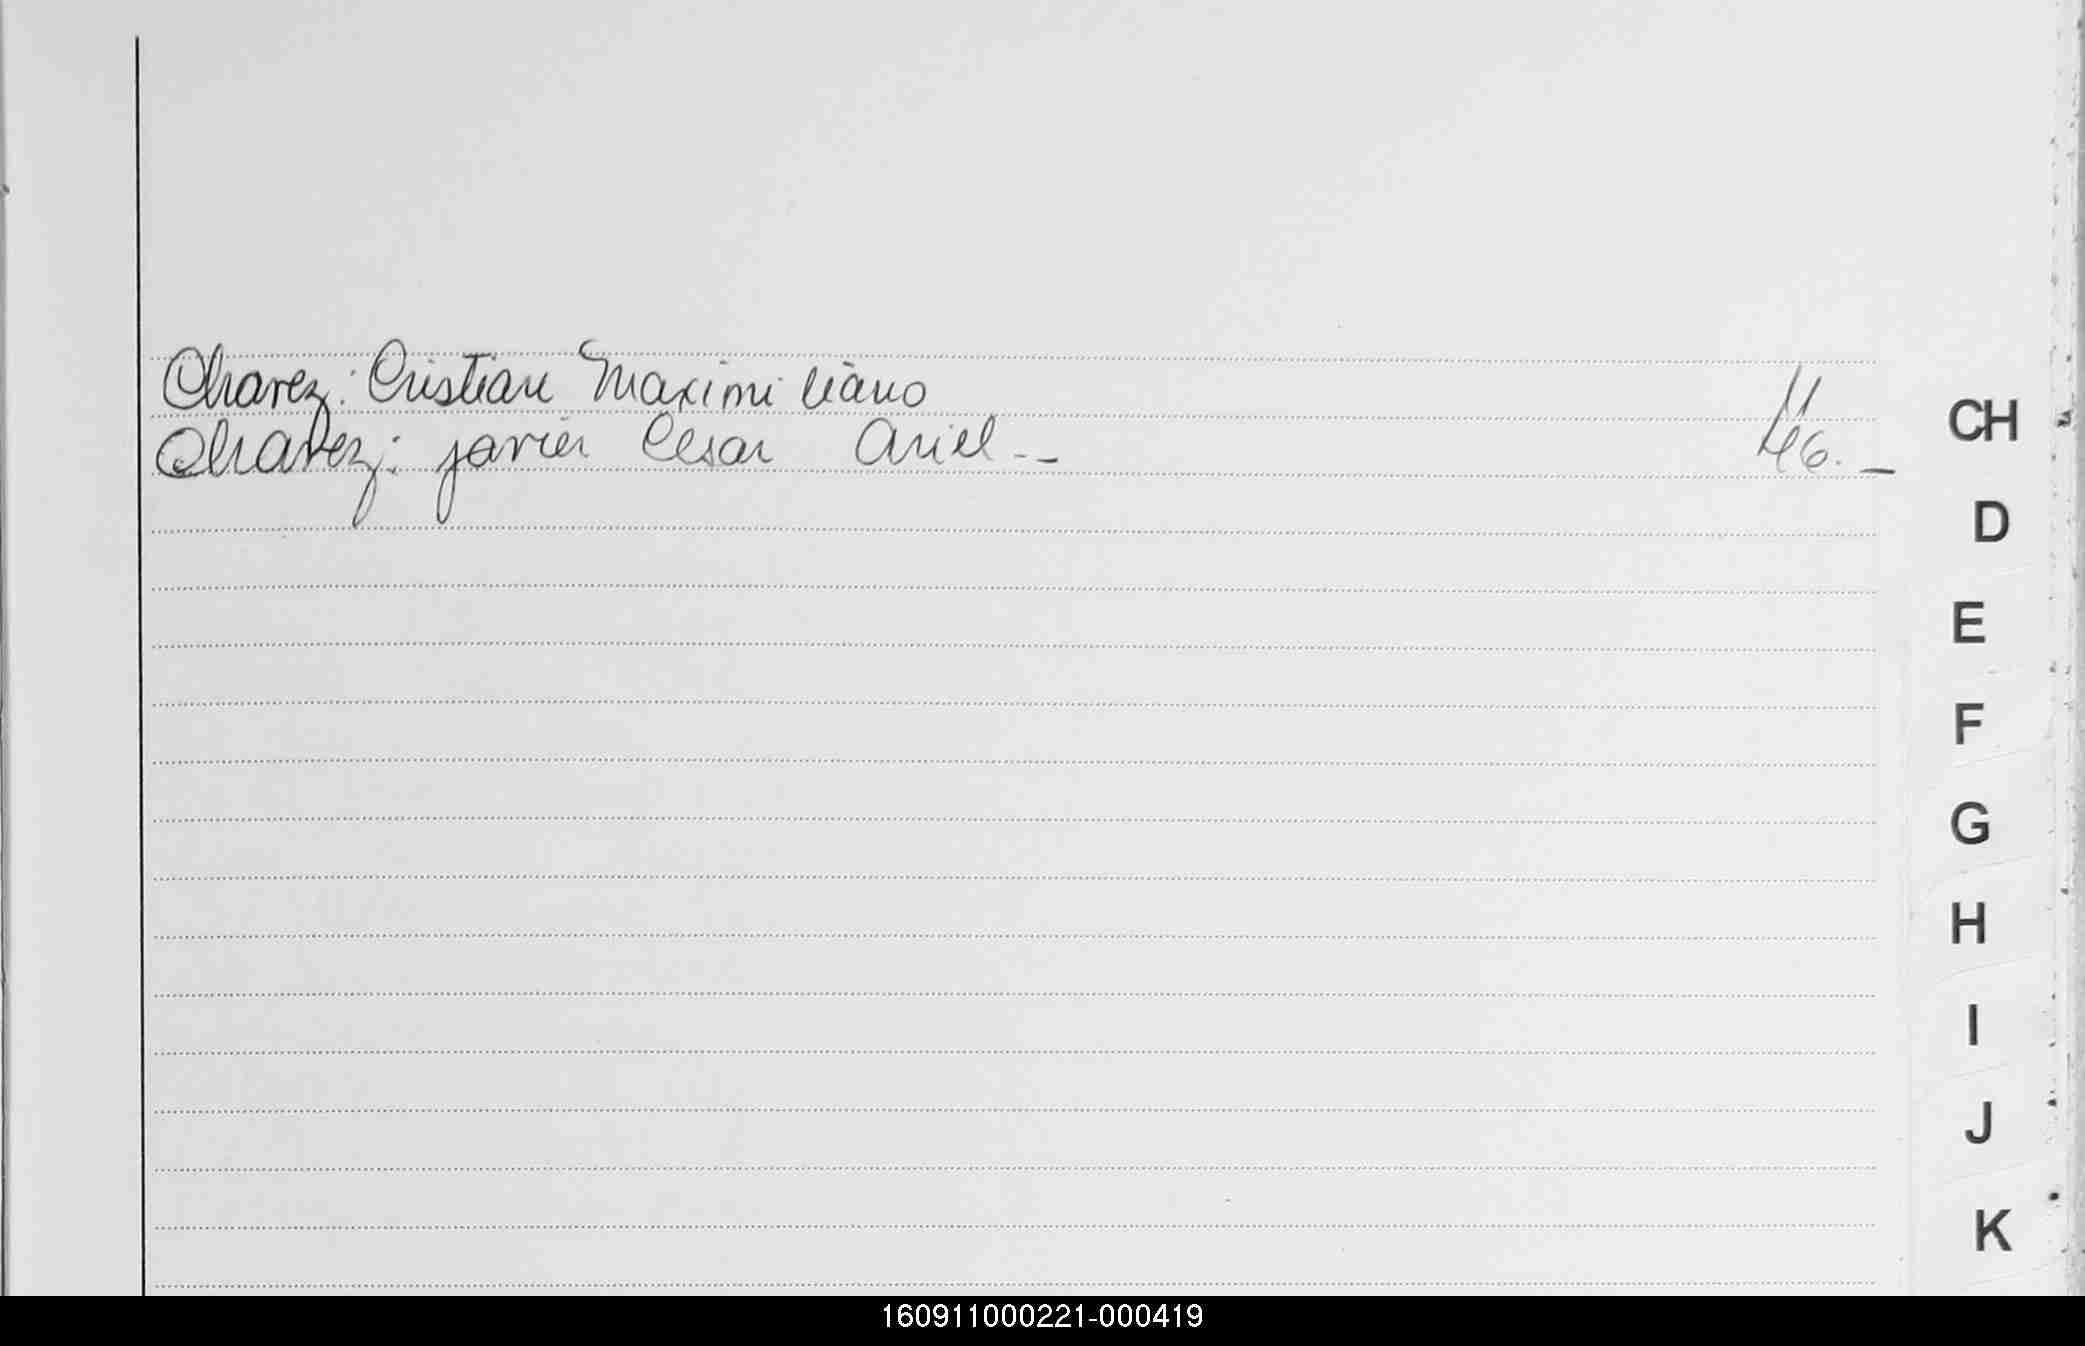 Chavez: Cristian Maximiliano
Chavez: javier Cesar Ariel.-
46.-
CH
D
E
F
G
H
I
J
K
160911000221-000419